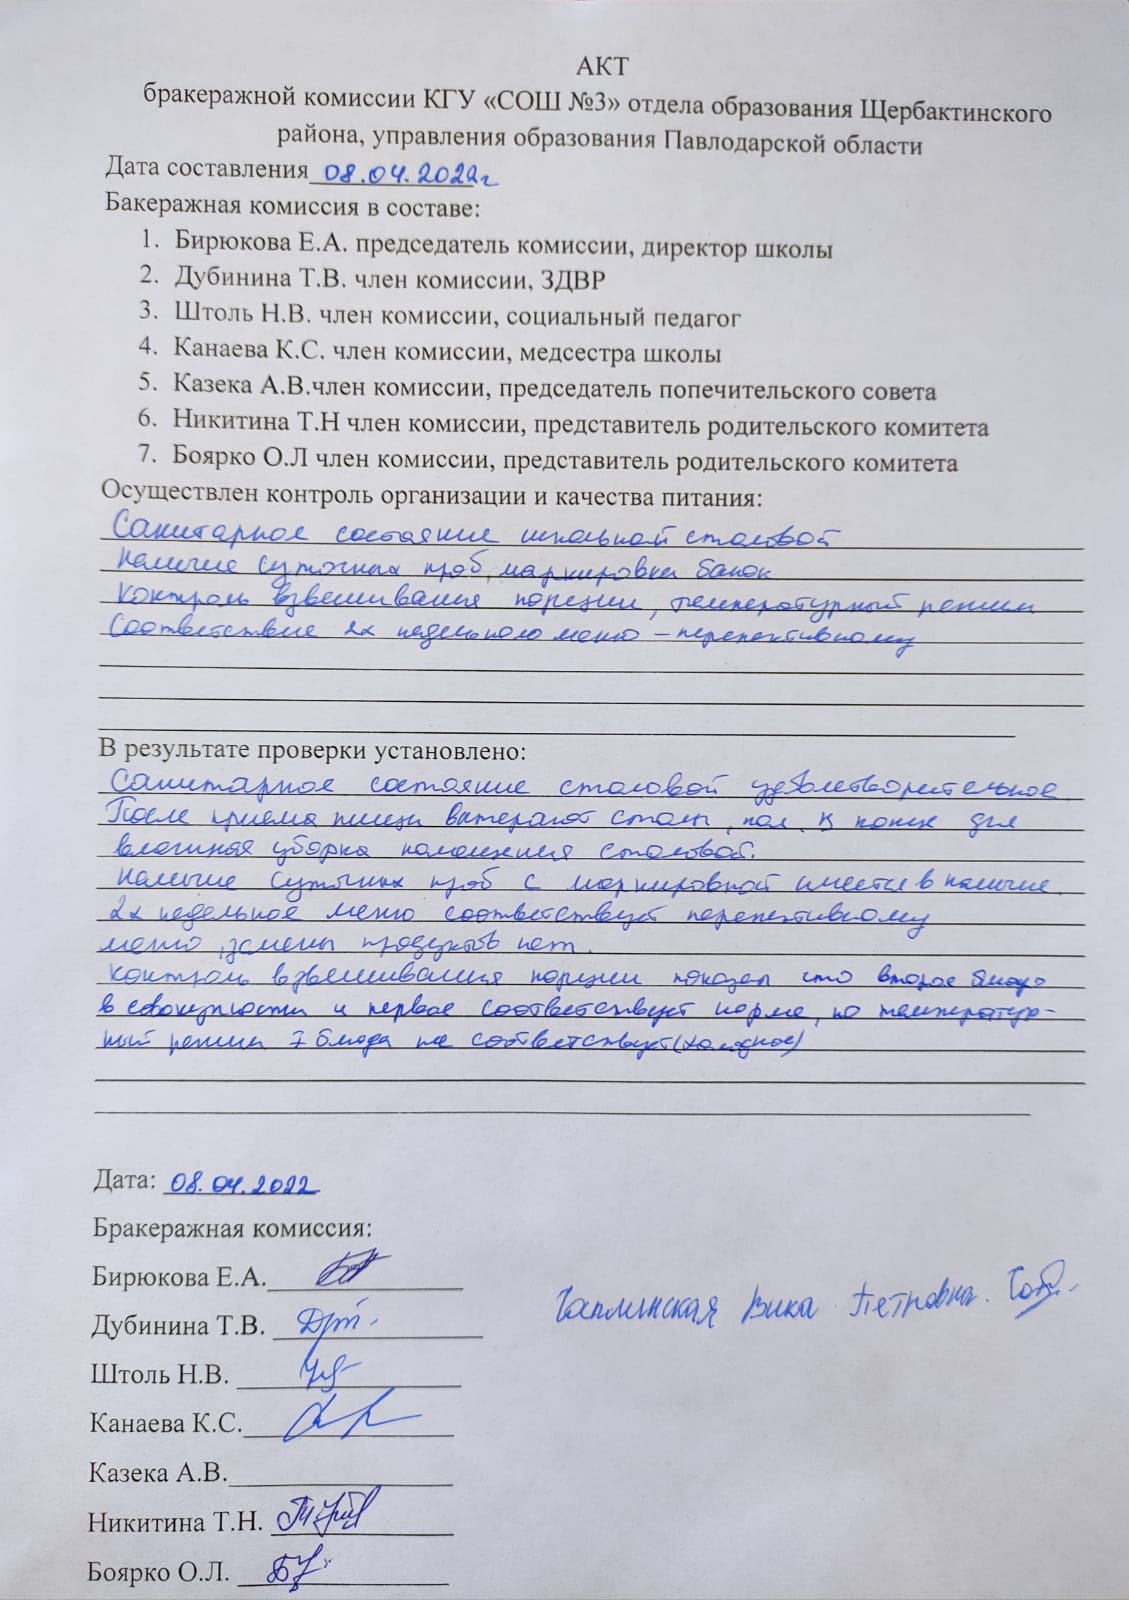 АКТ
бракеражной комиссии КГУ «СОШ №3» отдела образования Щербактинского
района, управления образования Павлодарской области
Дата составления 08.04.2022г
Бакеражная комиссия в составе:
1. Бирюкова Е.А. председатель комиссии, директор школы
2. Дубинина Т.В. член комиссии, ЗДВР
3. Штоль Н.В. член комиссии, социальный педагог
4. Канаева К.С. член комиссии, медсестра школы
5. Казека А.В.член комиссии, председатель попечительского совета
6. Никитина Т.Н член комиссии, представитель родительского комитета
7. Боярко О.Л член комиссии, представитель родительского комитета
Осуществлен контроль организации и качества питания:
Санитарное состояние школьной столовой
наличие суточных проб, маркировки банок
контроль взвешивания порции, температурный режим
Соответствие 2х недельного меню – перспективному
В результате проверки установлено:
Санитарное состояние столовой удовлетворительное
После приема пищи вытерают столы, пол, в конце дня
влажная уборка помещения столовой.
наличие суточных проб с маркировкой имеется в наличие.
2х недельное меню соответствует перспективному
меню, замены продуктов нет.
контроль взвешивания порции показал что второе блюдо
в совокупности и первое соответствует норме, но температур-
ный режим блюда не соответствует (холодное)
Дата: 08.04.2022
Бракеражная комиссия:
Бирюкова Е.А.
Дубинина Т.В.
Вика Петровна.
Штоль Н.В.
Канаева К.С.
Казека А.В.
Никитина Т.Н.
Боярко О.Л.